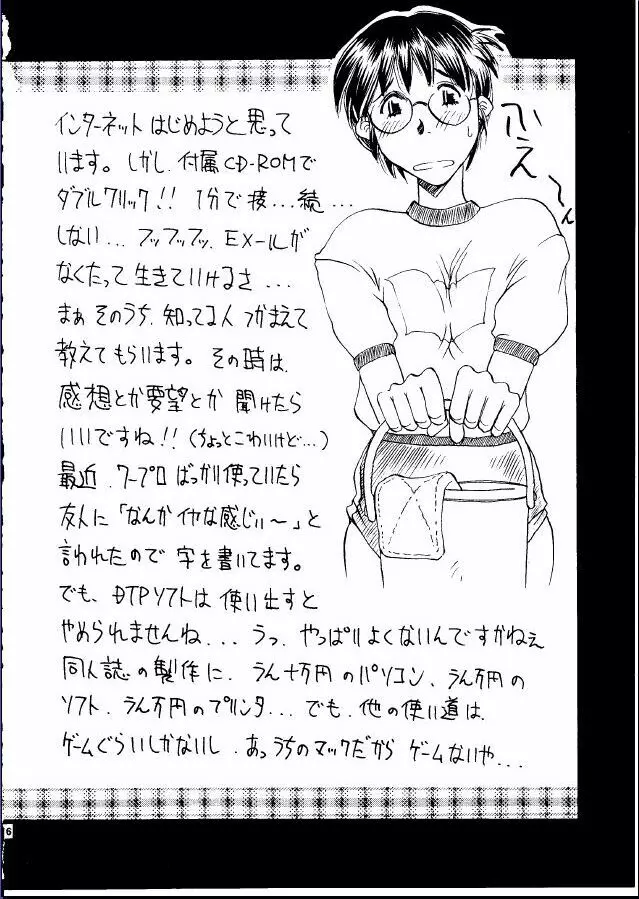 インターネットはじめようと思って
います。しかし、付属CD-ROMで
ダブルクリック!! 1分で接...続...
しない... フッフッフッ、EXールが
なくたって生きていけるさ...
まぁそのうち、知ってる人つかまえて
教えてもらいます。その時は、
感想とか要望とか聞けたら
いいですね!!(ちょっとこわいけど...)
最近、ワープロばっかり使っていたら
友人に「なんかイヤな感じぃ〜」と
言われたので字を書いてます。
でも、DTPソフトは使い出すと
やめられませんね... うっ、やっぱりよくないんですかねぇ
同人誌の製作に、うん十万円のパソコン、うん万円の
ソフト、うん万円のプリンタ... でも、他の使い道は
ゲームぐらいしかないし、あっうちのマックだからゲームないや...
ふえ〜ん
6